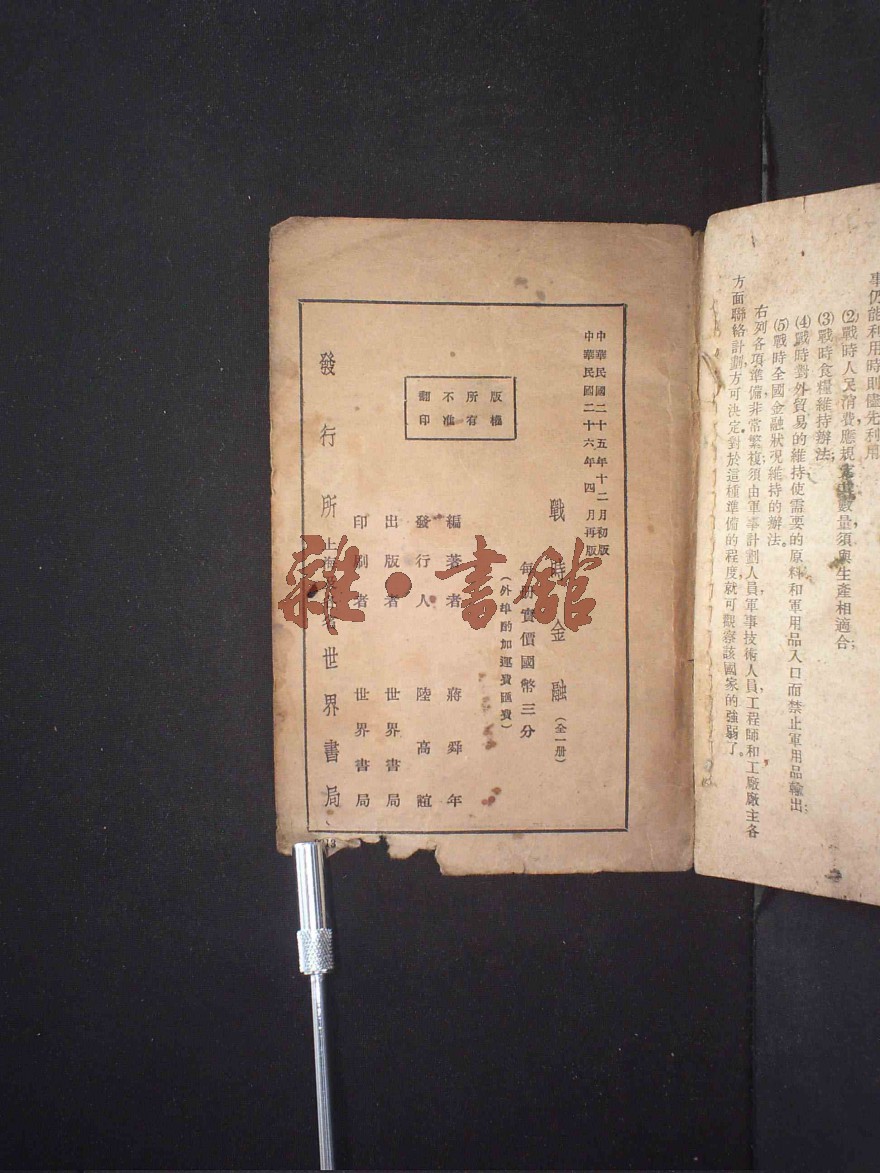 事仍能利用時則儘先利用
(2)戰時人民消費應規數量須與生產相適合;
(3)戰時食糧維持辦法;
(4)戰時對外貿易的維持使需要的原料和軍用品入口而禁止軍用品輸出;
(5)戰時全國金融狀況維持的辦法。
右列各項準備非常繁複須由軍事計劃人員,軍事技術人員,工程師和工廠廠主各
方面聯絡計劃,方可決定對於這種準備的程度就可觀察該國家的強弱了。
中華民國二十五年十二月初版
中華民國二十六年四月再版
戰時金融(全一册)
每册實價國幣三分
(外埠酌加運費匯費)
版權所有
不准翻印
編著者 蔣舜年
發行人 陸高誼
出版者 世界書局
印刷者 世界書局
發行所 上海 世界書局
雜·書館